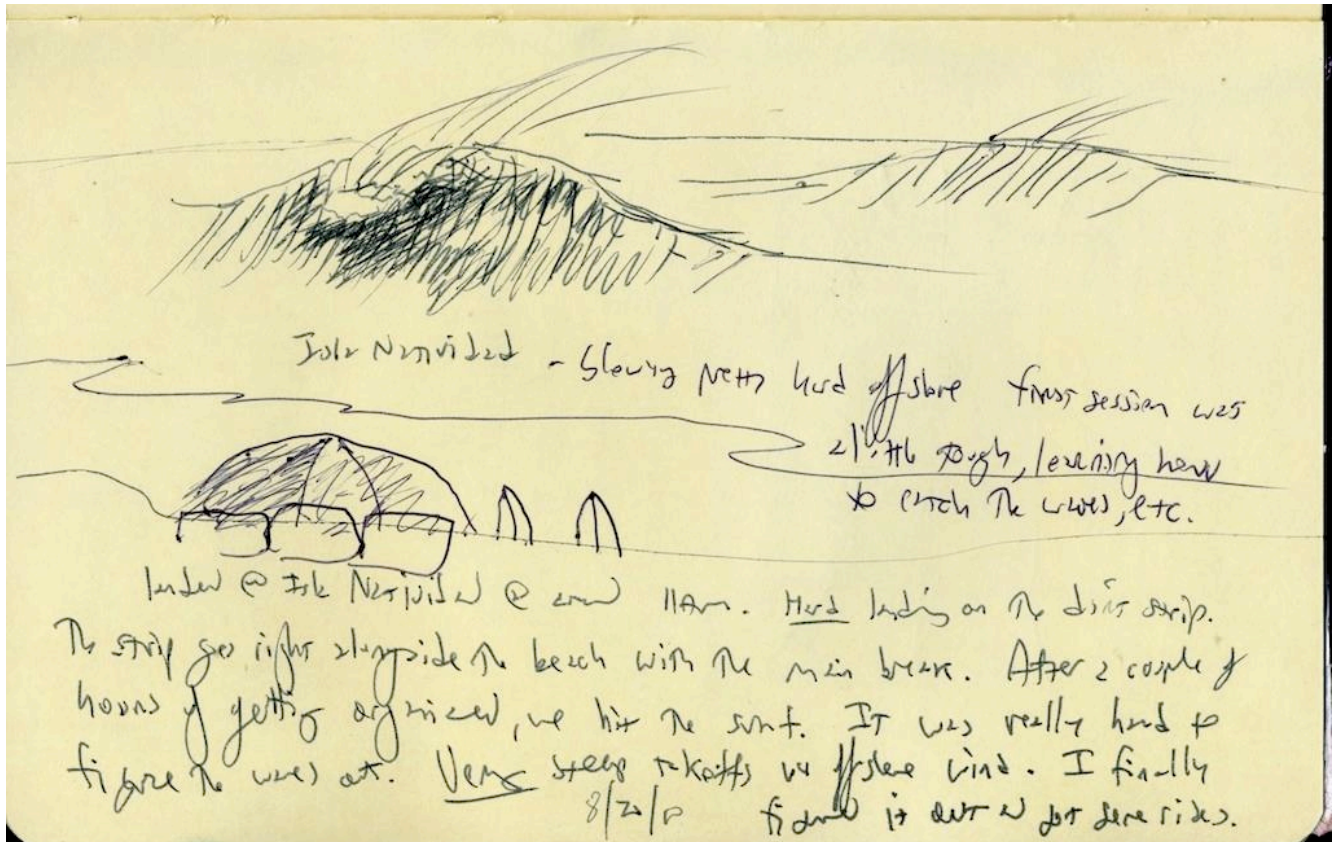 Isla Natividad - blowing pretty hard offshore first session was
a little tough, learning how
to catch the waves, etc.
landed @ Isla Natividad @ around 11am. Hard landing on the dirt strip.
The strip goes right alongside the beach with the main break. After a couple of
hours of getting organized, we hit the surf. IT was really hard to
figure the waves out. Very steep takeoffs w/ offshore wind. I finally
figured it out & got some rides.